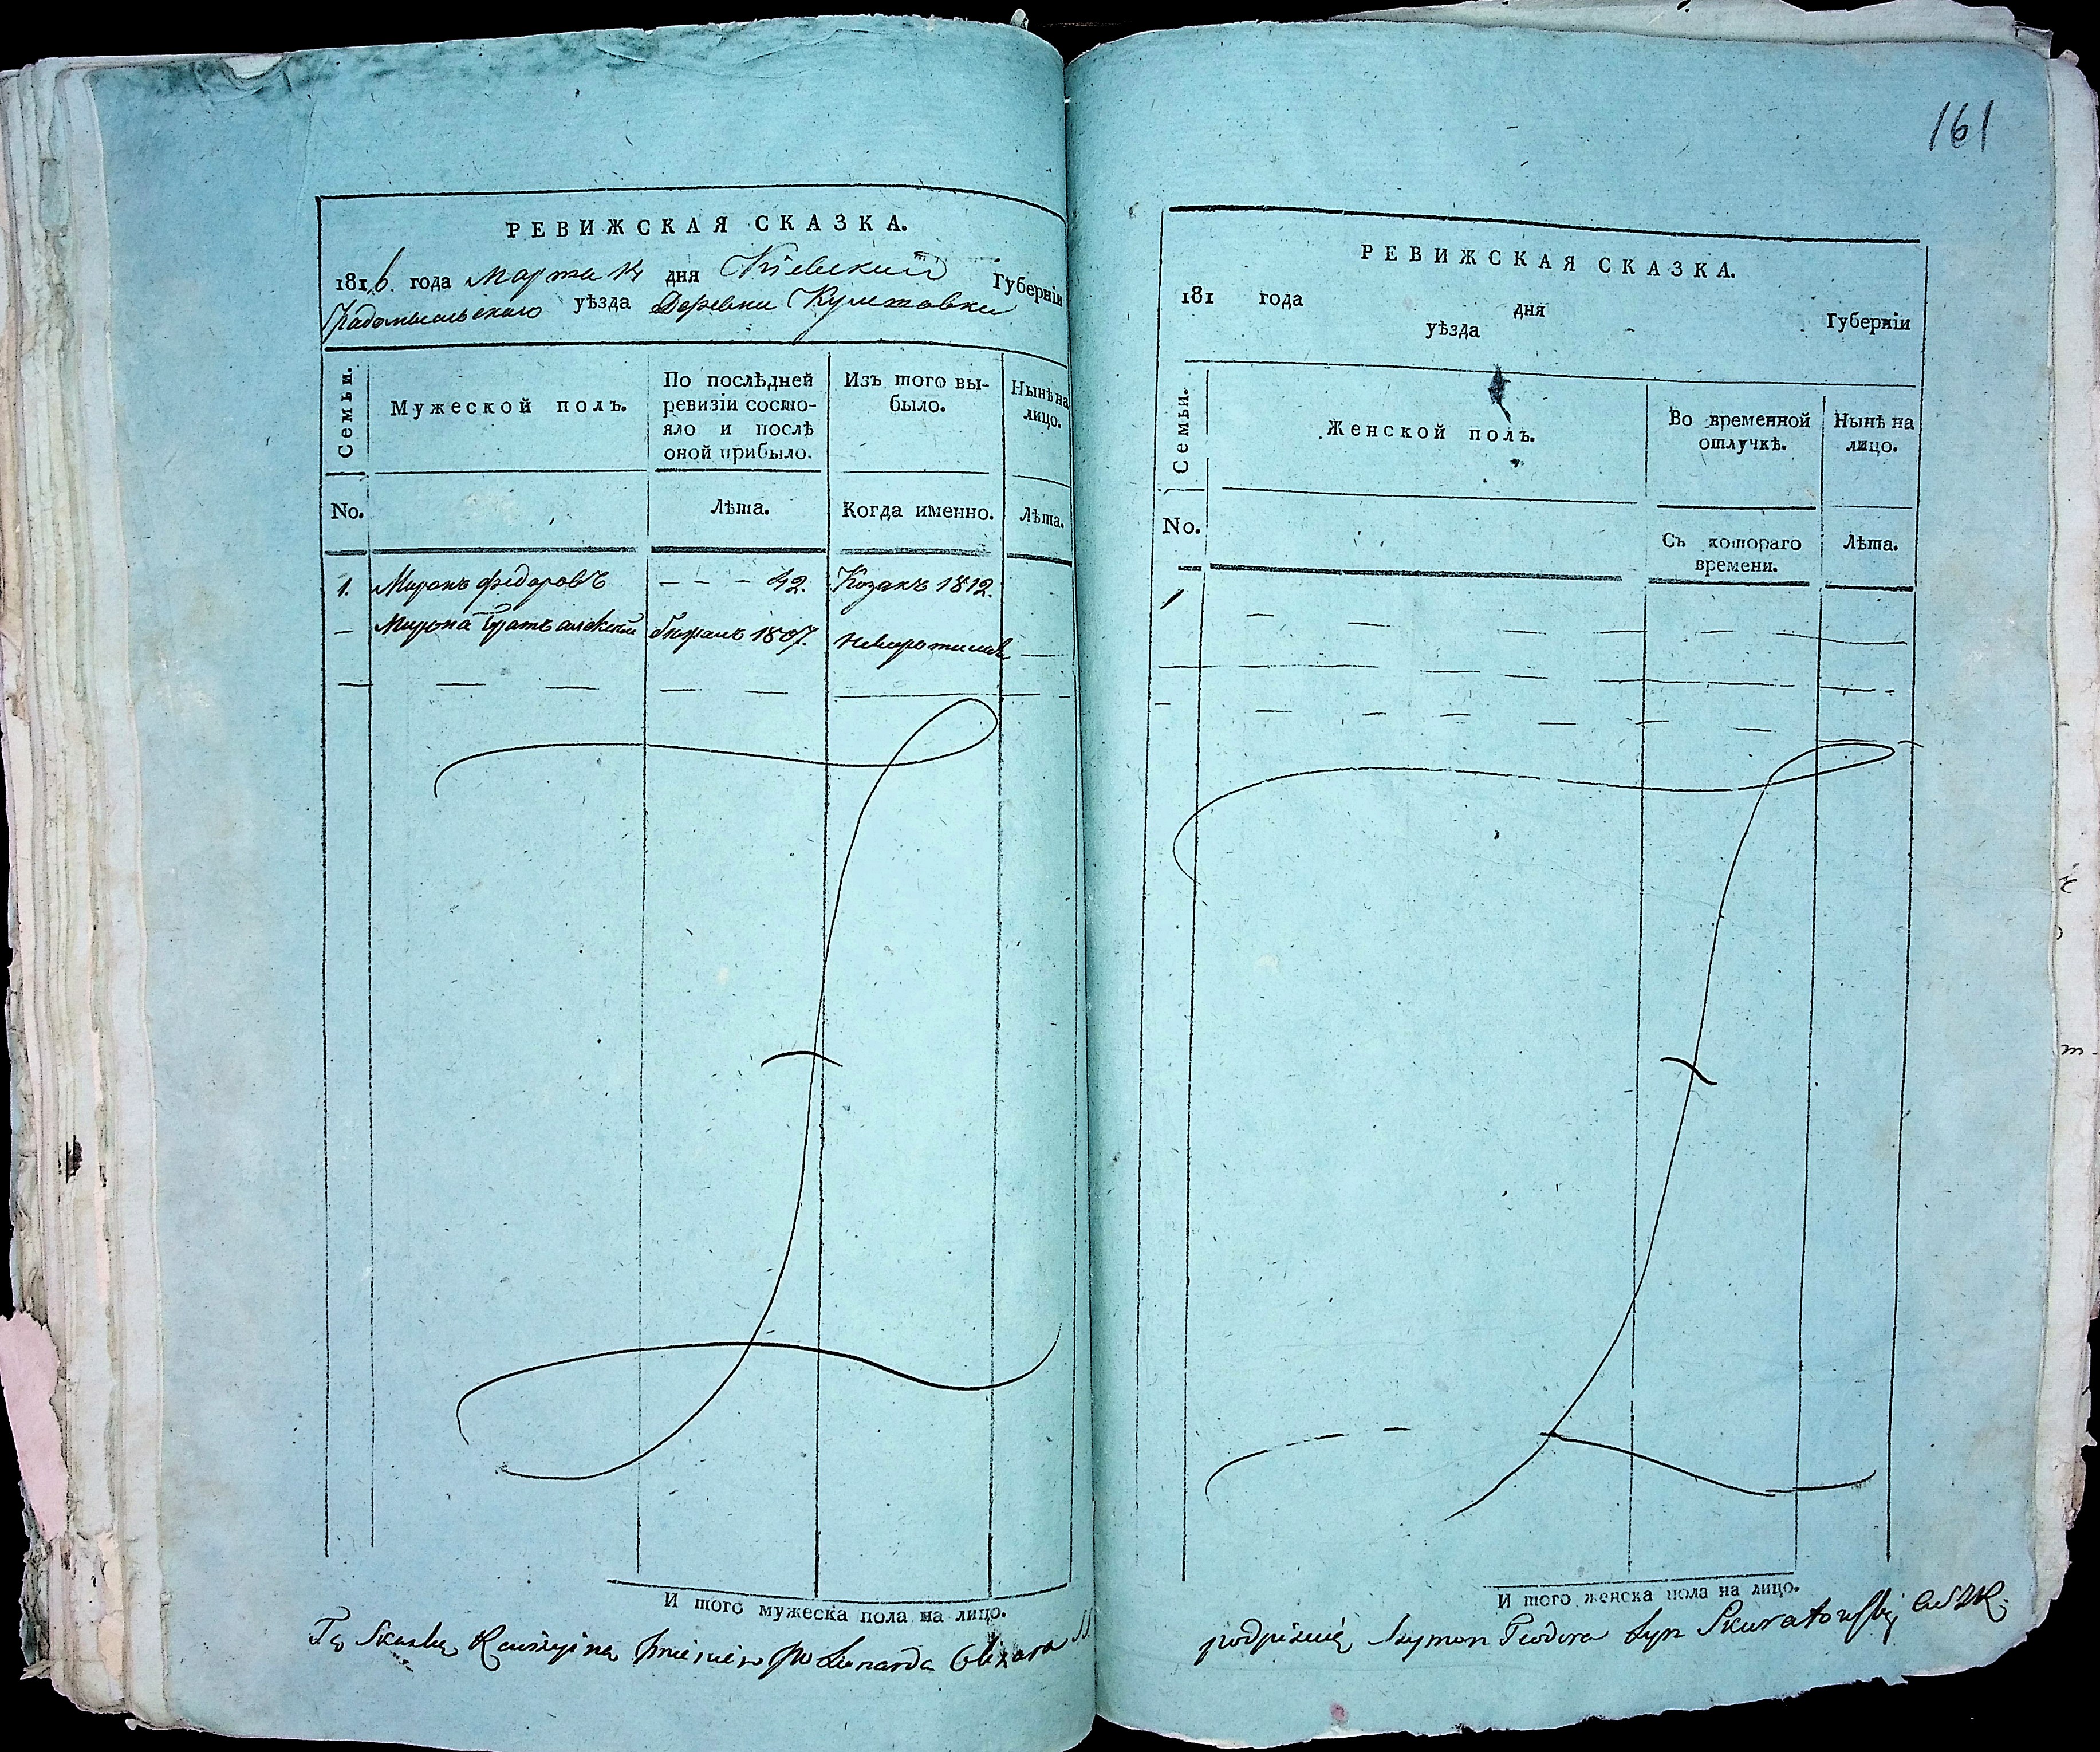 161
РЕВИЖСКАЯ СКАЗКА.
1816. года Марта 14 дня Кіевской Губерніи
Радомысльскаго уѣзда Деревни
Семьи.
Мужеской полъ.
По послѣдней ревизіи состо-
яло и послѣ
оной прибыло.
Изъ того вы-
было.
Нынѣ на
лицо.
No.
Лѣта.
Когда именно.
Лѣта.
1. Миронъ Федоровъ — — — 42. Козакъ 1812.
— Мирона братъ Алексей 1807.
И того мужеска пола на лицо.
Tę Skazkę Imieniem JW Leonarda Olizara
РЕВИЖСКАЯ СКАЗКА.
181 года дня Губерніи
уѣзда
Семьи.
Женской полъ.
Во временной
отлучкѣ.
Нынѣ на
лицо.
No.
Съ котораго
времени.
Лѣта.
И того женска пола на лицо.
podpisuię Szymon Teodora Syn Skuratowski